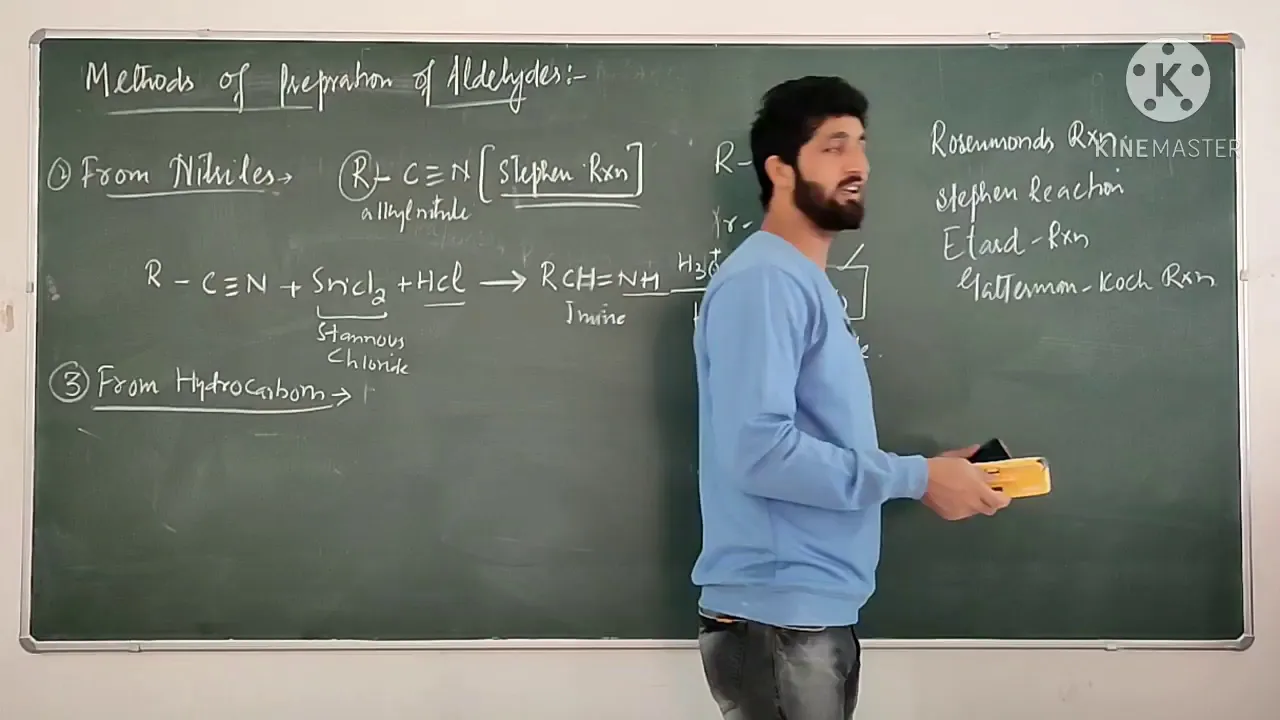 Methods of Prepration of Aldehydes:-
② From Nitriles → R - C ≡ N [Stephen Rxn]
alkyl nitrile
R - C ≡ N + SnCl2 + HCl → RCH=NH H3O+
Stannous Imine
Chloride
③ From Hydrocarbons →
R-
Rosenmonds Rxn
Stephen Reaction
Etard - Rxn
Gattermon - Koch Rxn
K
KINEMASTER